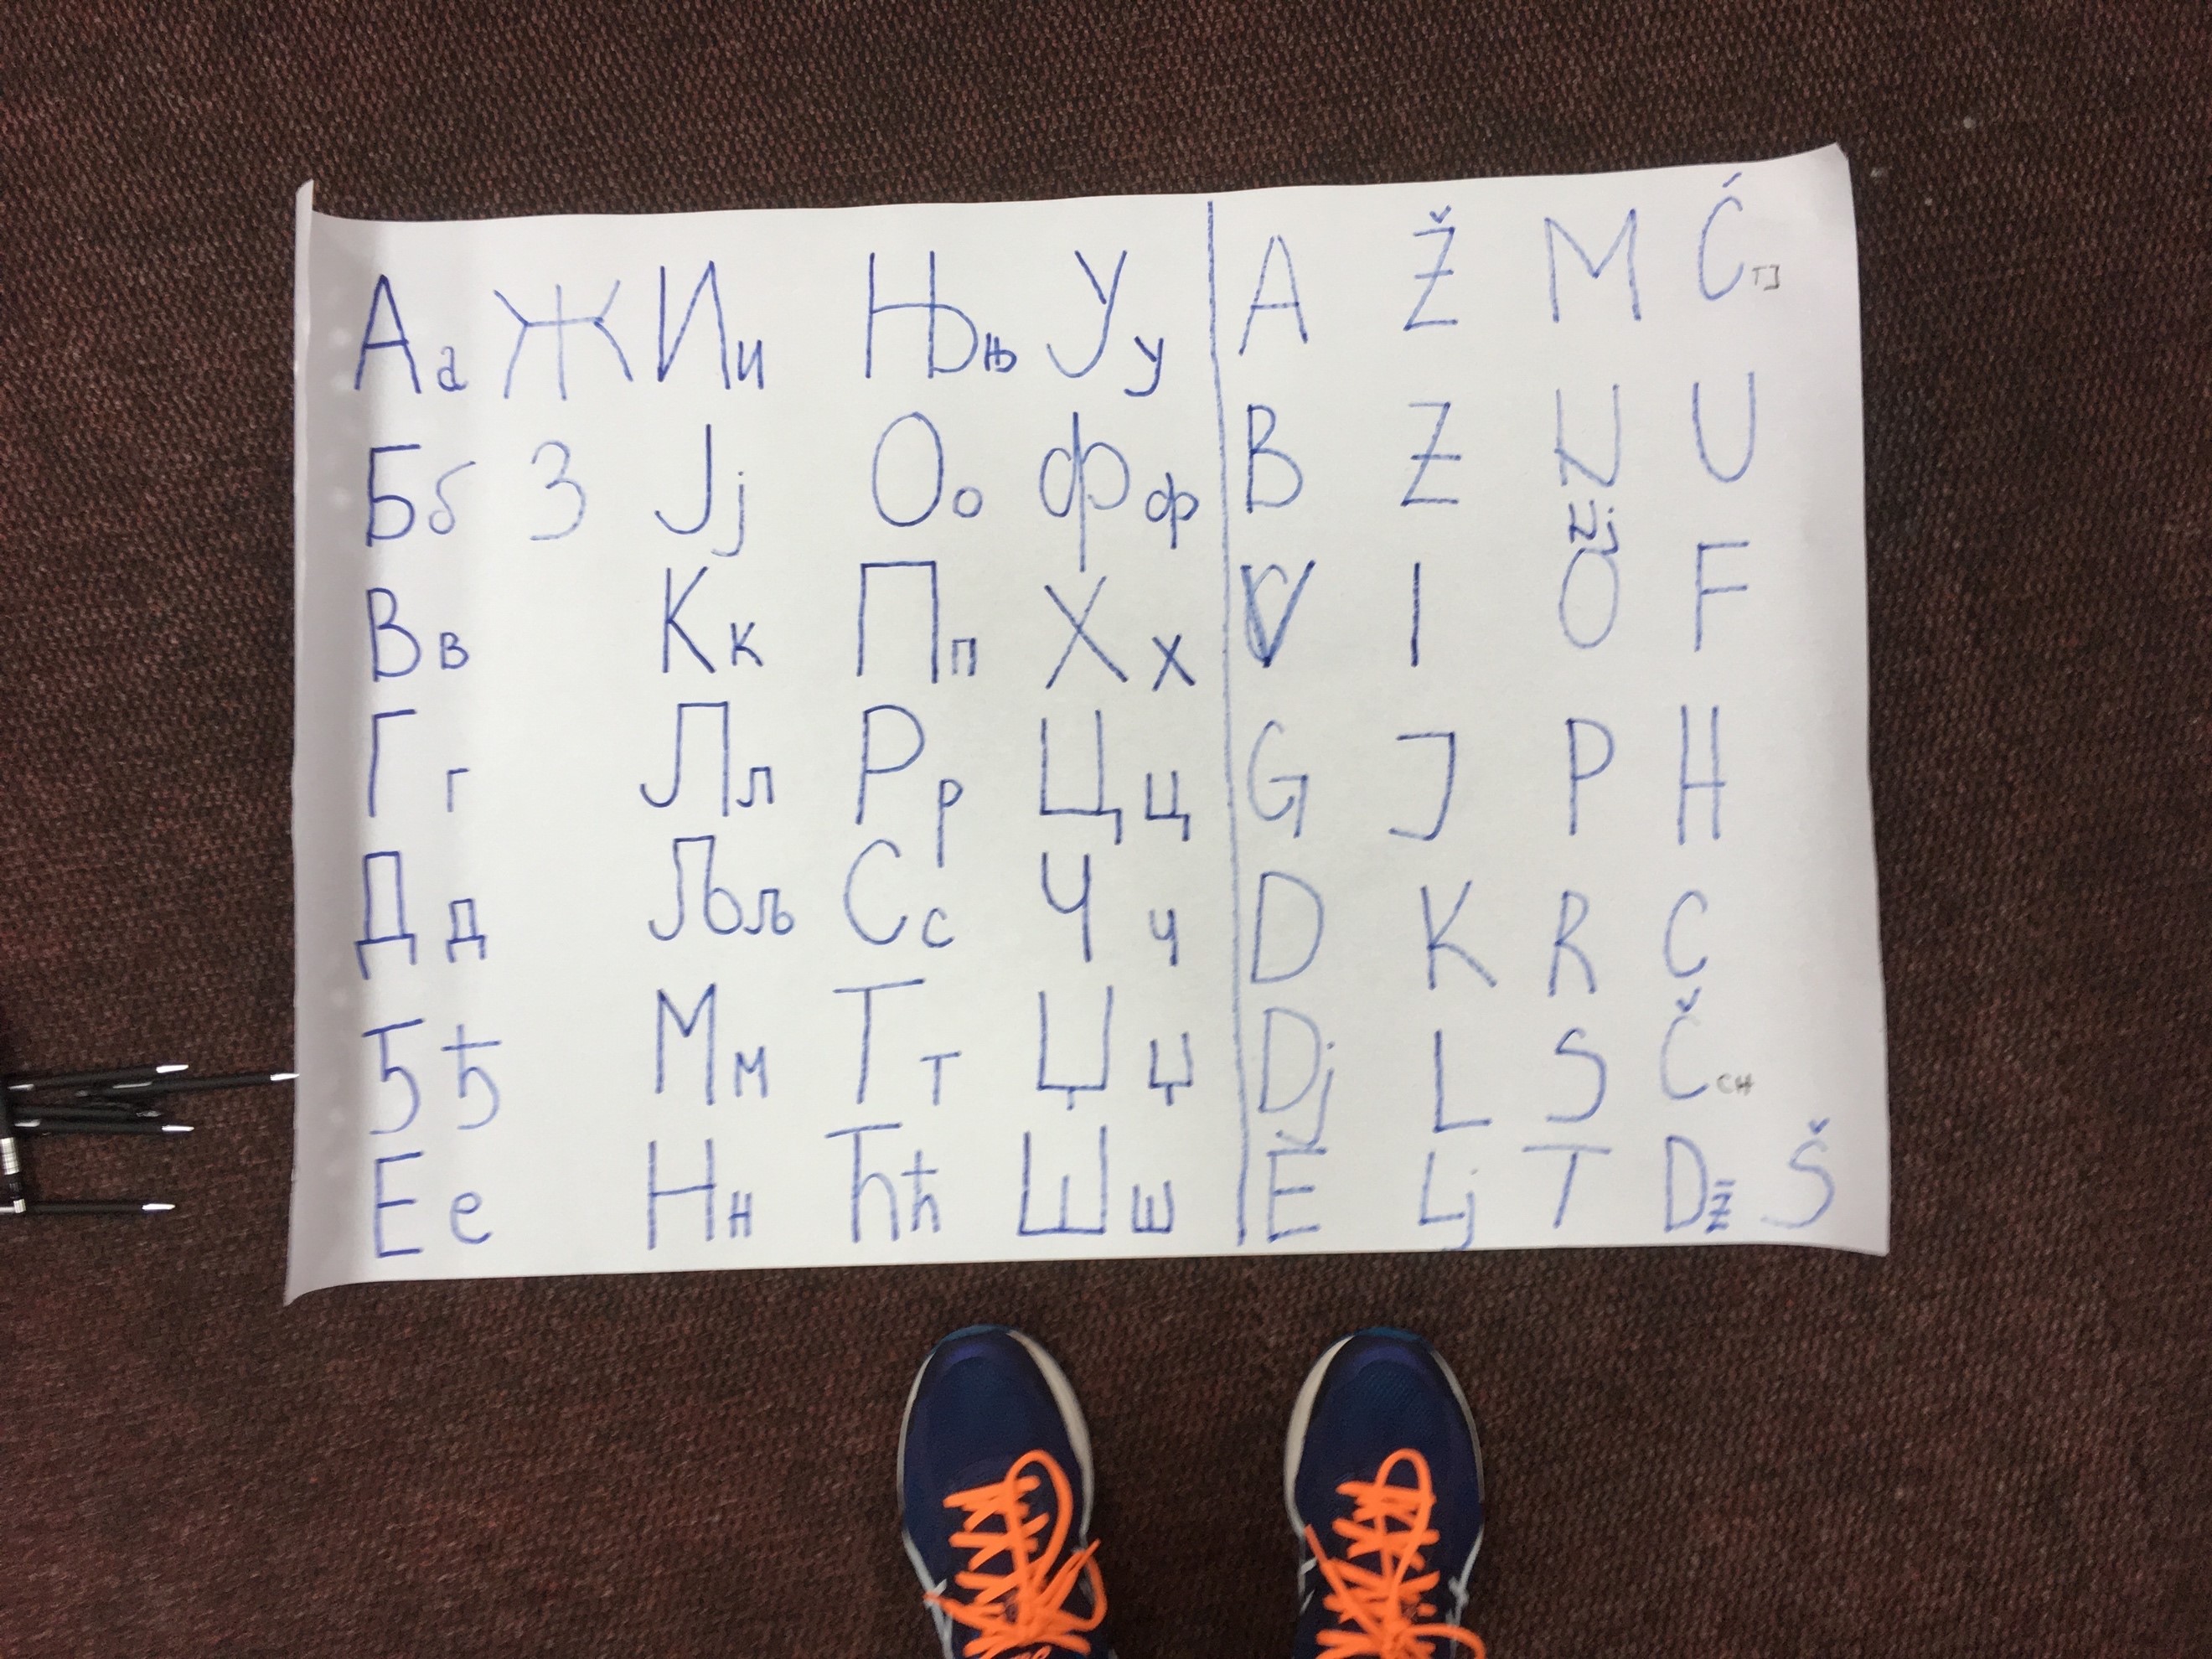 Аа
Бб
Вв
Гг
Дд
Ђђ
Ее
Ж
З
Ии
Јј
Кк
Лл
Љљ
Мм
Нн
Њњ
Оо
Пп
Рр
Сс
Тт
Ћћ
Уу
Фф
Хх
Цц
Чч
Џџ
Шш
A
B
V
G
D
Dj
E
Ž
Z
I
J
K
L
Lj
M
N
Nj
O
P
R
S
T
Ć TJ
U
F
H
C
Č CH
Dž
Š